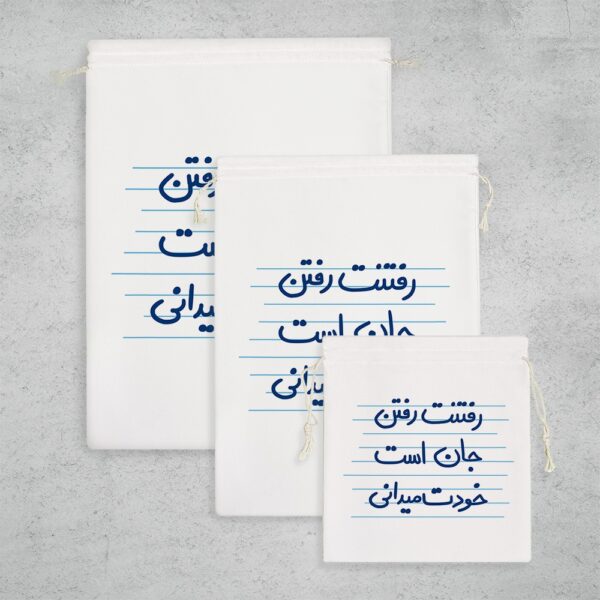 رفتن
ست
میدانی
رفتنت رفتن
جان است
میدانی
رفتنت رفتن
جان است
خودت میدانی